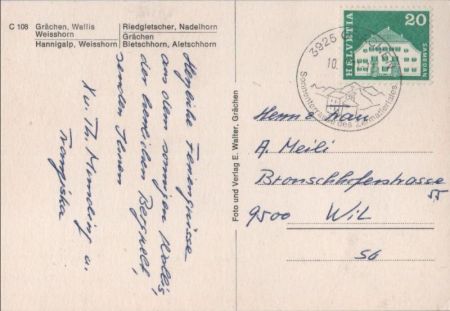 C 108 Grächen, Wallis
Weisshorn
Hannigalp, Weisshorn
Riedgletscher, Nadelhorn
Grächen
Bietschhorn, Aletschhorn
Herzliche Feriengrüsse
aus dem sonnigen Wallis,
den herrlichen Bergwelt,
senden Ihnen
Xv. Th. u.
Franziska
Foto und Verlag E. Walter, Grächen
3925
10.
Sonnenterrasse des Zermattertales
HELVETIA
20
SAMEDAN
Herrn & Frau
A. Meili
Bronschhoferstrasse
55
9500 Wil
SG